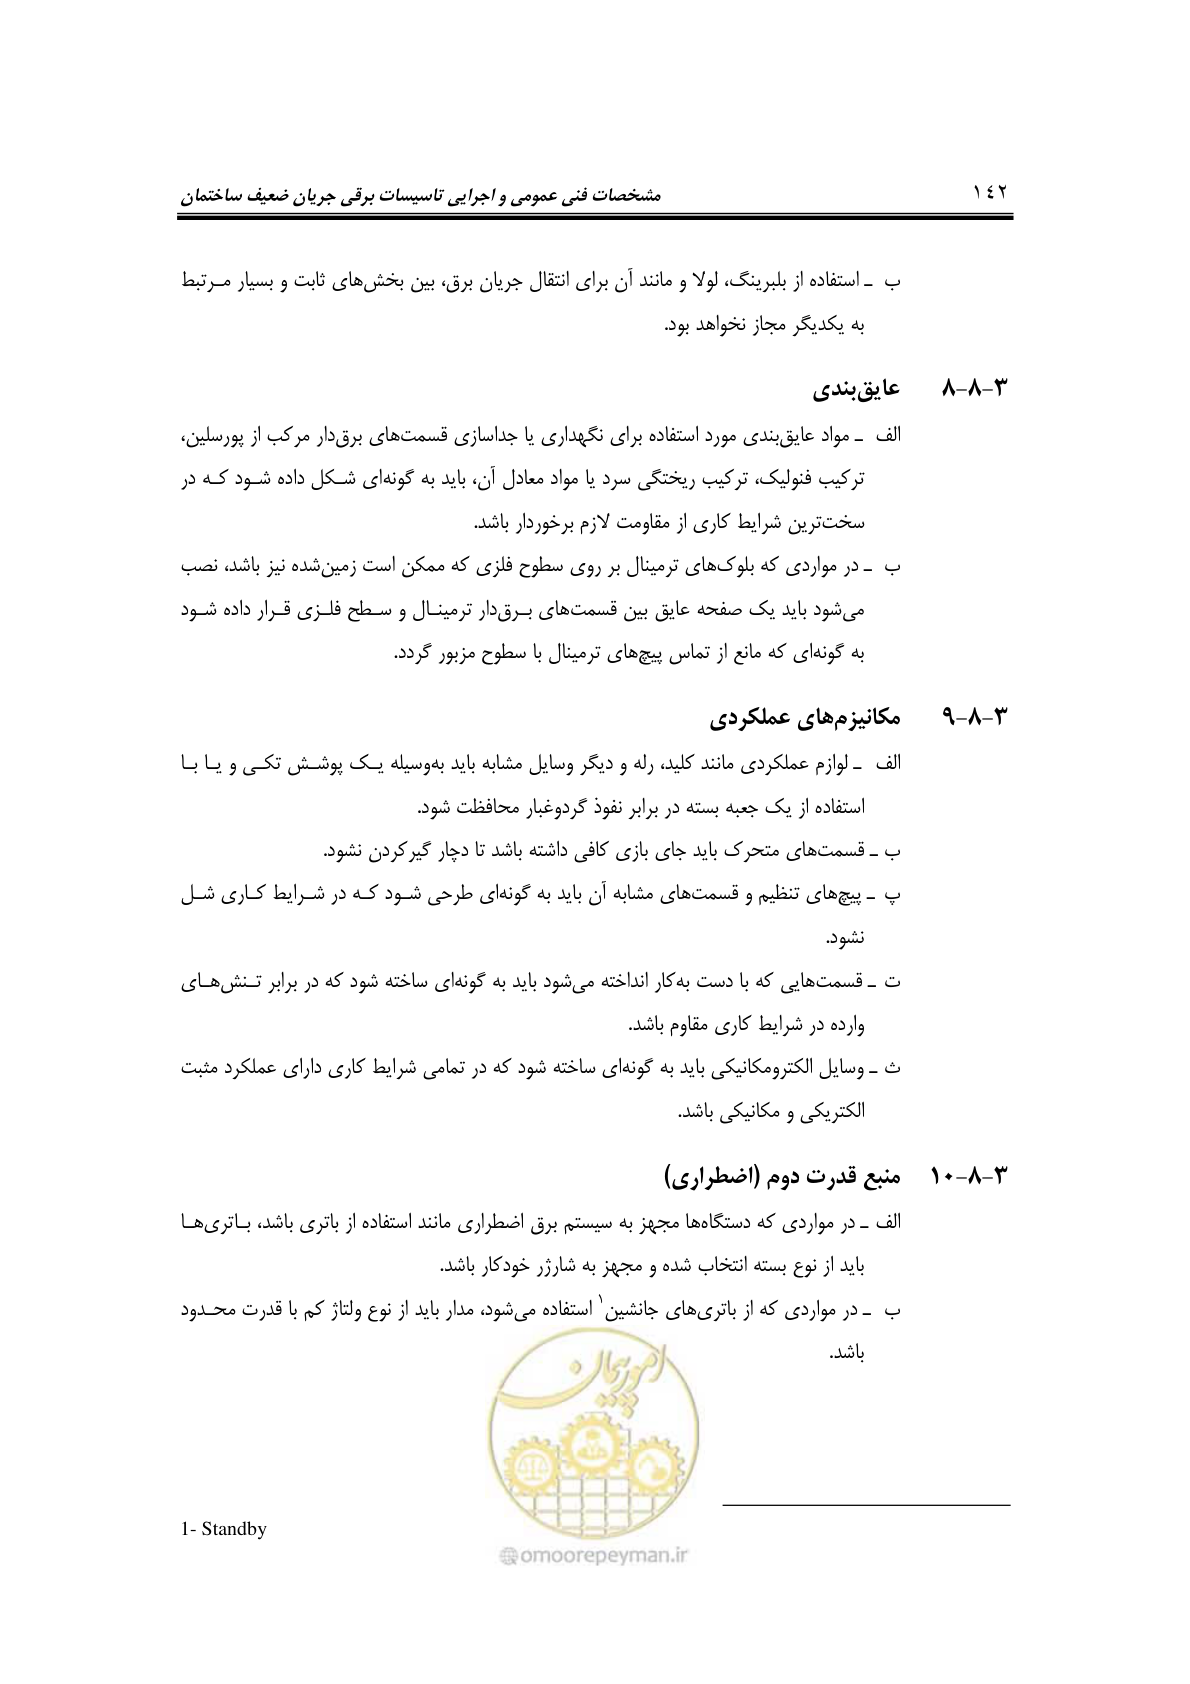 ۱۴۲ مشخصات فنی عمومی و اجرایی تاسیسات برقی جریان ضعیف ساختمان
ب ـ استفاده از بلبرینگ، لولا و مانند آن برای انتقال جریان برق، بین بخش‌های ثابت و بسیار مـرتبط
به یکدیگر مجاز نخواهد بود.
۳-۸-۸ عایق‌بندی
الف ـ مواد عایق‌بندی مورد استفاده برای نگهداری یا جداسازی قسمت‌های برق‌دار مرکب از پورسلین،
ترکیب فنولیک، ترکیب ریختگی سرد یا مواد معادل آن، باید به گونه‌ای شـکل داده شـود کـه در
سخت‌ترین شرایط کاری از مقاومت لازم برخوردار باشد.
ب ـ در مواردی که بلوک‌های ترمینال بر روی سطوح فلزی که ممکن است زمین‌شده نیز باشد، نصب
می‌شود باید یک صفحه عایق بین قسمت‌های بـرق‌دار ترمینـال و سـطح فلـزی قـرار داده شـود
به گونه‌ای که مانع از تماس پیچ‌های ترمینال با سطوح مزبور گردد.
۳-۸-۹ مکانیزم‌های عملکردی
الف ـ لوازم عملکردی مانند کلید، رله و دیگر وسایل مشابه باید به‌وسیله یـک پوشـش تکـی و یـا بـا
استفاده از یک جعبه بسته در برابر نفوذ گردوغبار محافظت شود.
ب ـ قسمت‌های متحرک باید جای بازی کافی داشته باشد تا دچار گیرکردن نشود.
پ ـ پیچ‌های تنظیم و قسمت‌های مشابه آن باید به گونه‌ای طرحی شـود کـه در شـرایط کـاری شـل
نشود.
ت ـ قسمت‌هایی که با دست به‌کار انداخته می‌شود باید به گونه‌ای ساخته شود که در برابر تـنش‌هـای
وارده در شرایط کاری مقاوم باشد.
ث ـ وسایل الکترومکانیکی باید به گونه‌ای ساخته شود که در تمامی شرایط کاری دارای عملکرد مثبت
الکتریکی و مکانیکی باشد.
۳-۸-۱۰ منبع قدرت دوم (اضطراری)
الف ـ در مواردی که دستگاه‌ها مجهز به سیستم برق اضطراری مانند استفاده از باتری باشد، بـاتری‌هـا
باید از نوع بسته انتخاب شده و مجهز به شارژر خودکار باشد.
ب ـ در مواردی که از باتری‌های جانشین۱ استفاده می‌شود، مدار باید از نوع ولتاژ کم با قدرت محـدود
باشد.
امور پیمان
1- Standby
@omoorepeyman.ir